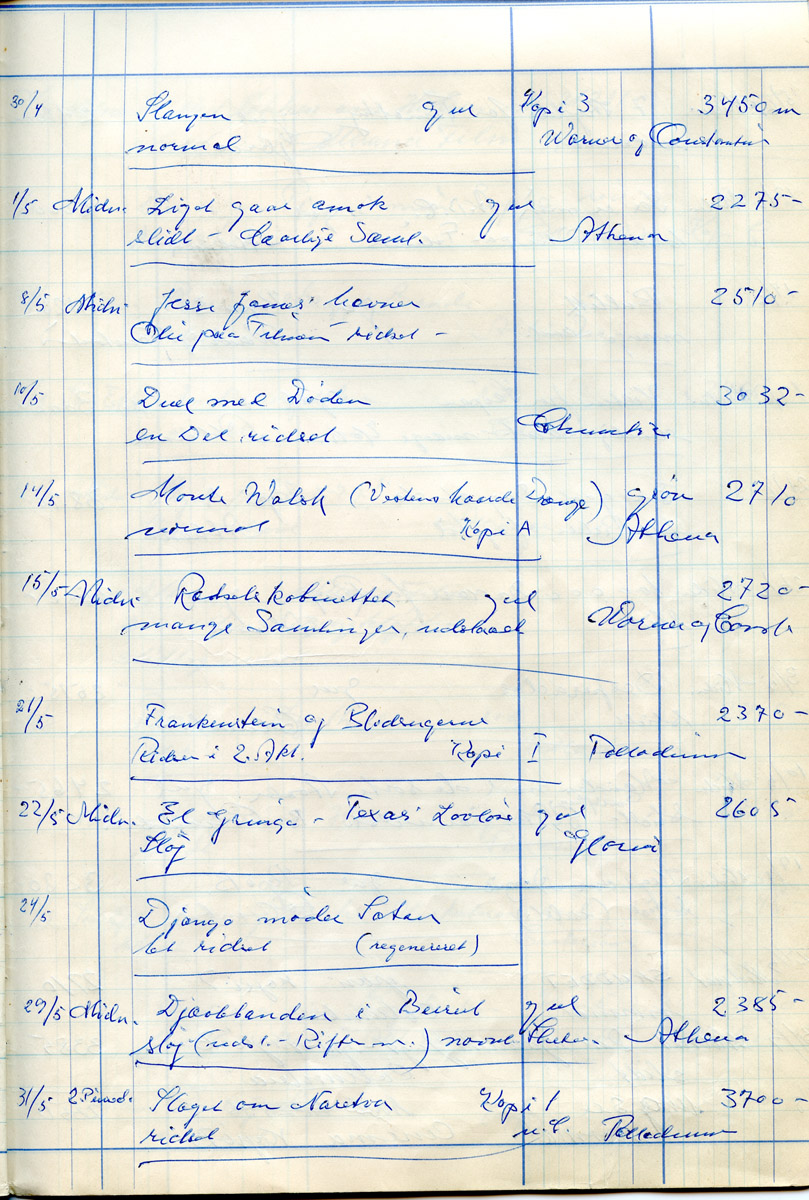 30/4 Slangen gul Kopi 3 3450 m
normal Warner og Constantin
1/5 Midn. Liget gaar amok gul 2275-
slidt - Saml. Athena
8/5 Midn. Jesse James' 2510-
ridset -
10/5 Duel med Døden 3032-
en Del ridset Columbia
14/5 Monte Walsh (Vestens haarde Drenge) grøn 2710
normal Kopi A Athena
15/5 Midn. Rædselskabinettet gul 2720-
mange Samlinger, udslidt Warner og Const.
21/5 Frankenstein og Blodsugerne 2370-
Ridser i 2. Akt. Kopi I Palladium
22/5 Midn. El Gringo - Texas' Lovløse gul 2605
Sløj Gloria
24/5 Django møder Satan
let ridset (regenereret)
29/5 Midn. Djævlebanden i Beirut gul 2385-
sløj Athena
31/5 2 Period. Slaget om Naretva Kopi 1 3700-
ridset Palladium